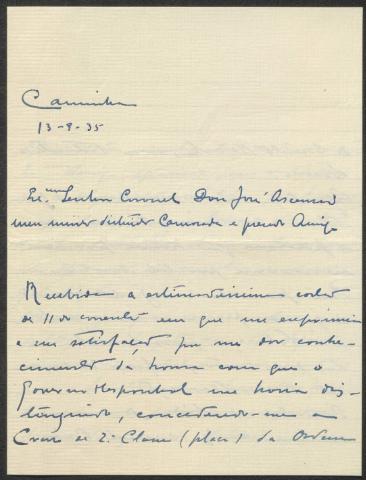 Caminha
13-9-35
Ex.mo Senhor Coronel Don José Ascensio
meu muito distinto Camarada e prezado Amigo
Recebida a estimadissima carta
de 11 do corrente em que me exprimia
a sua satisfação por me dar conhe-
cimento da honra com que o
Governo Hespanhol me havia dis-
tinguido, concedendo-me a
Cruz de 2ª Classe (placa) da Ordem